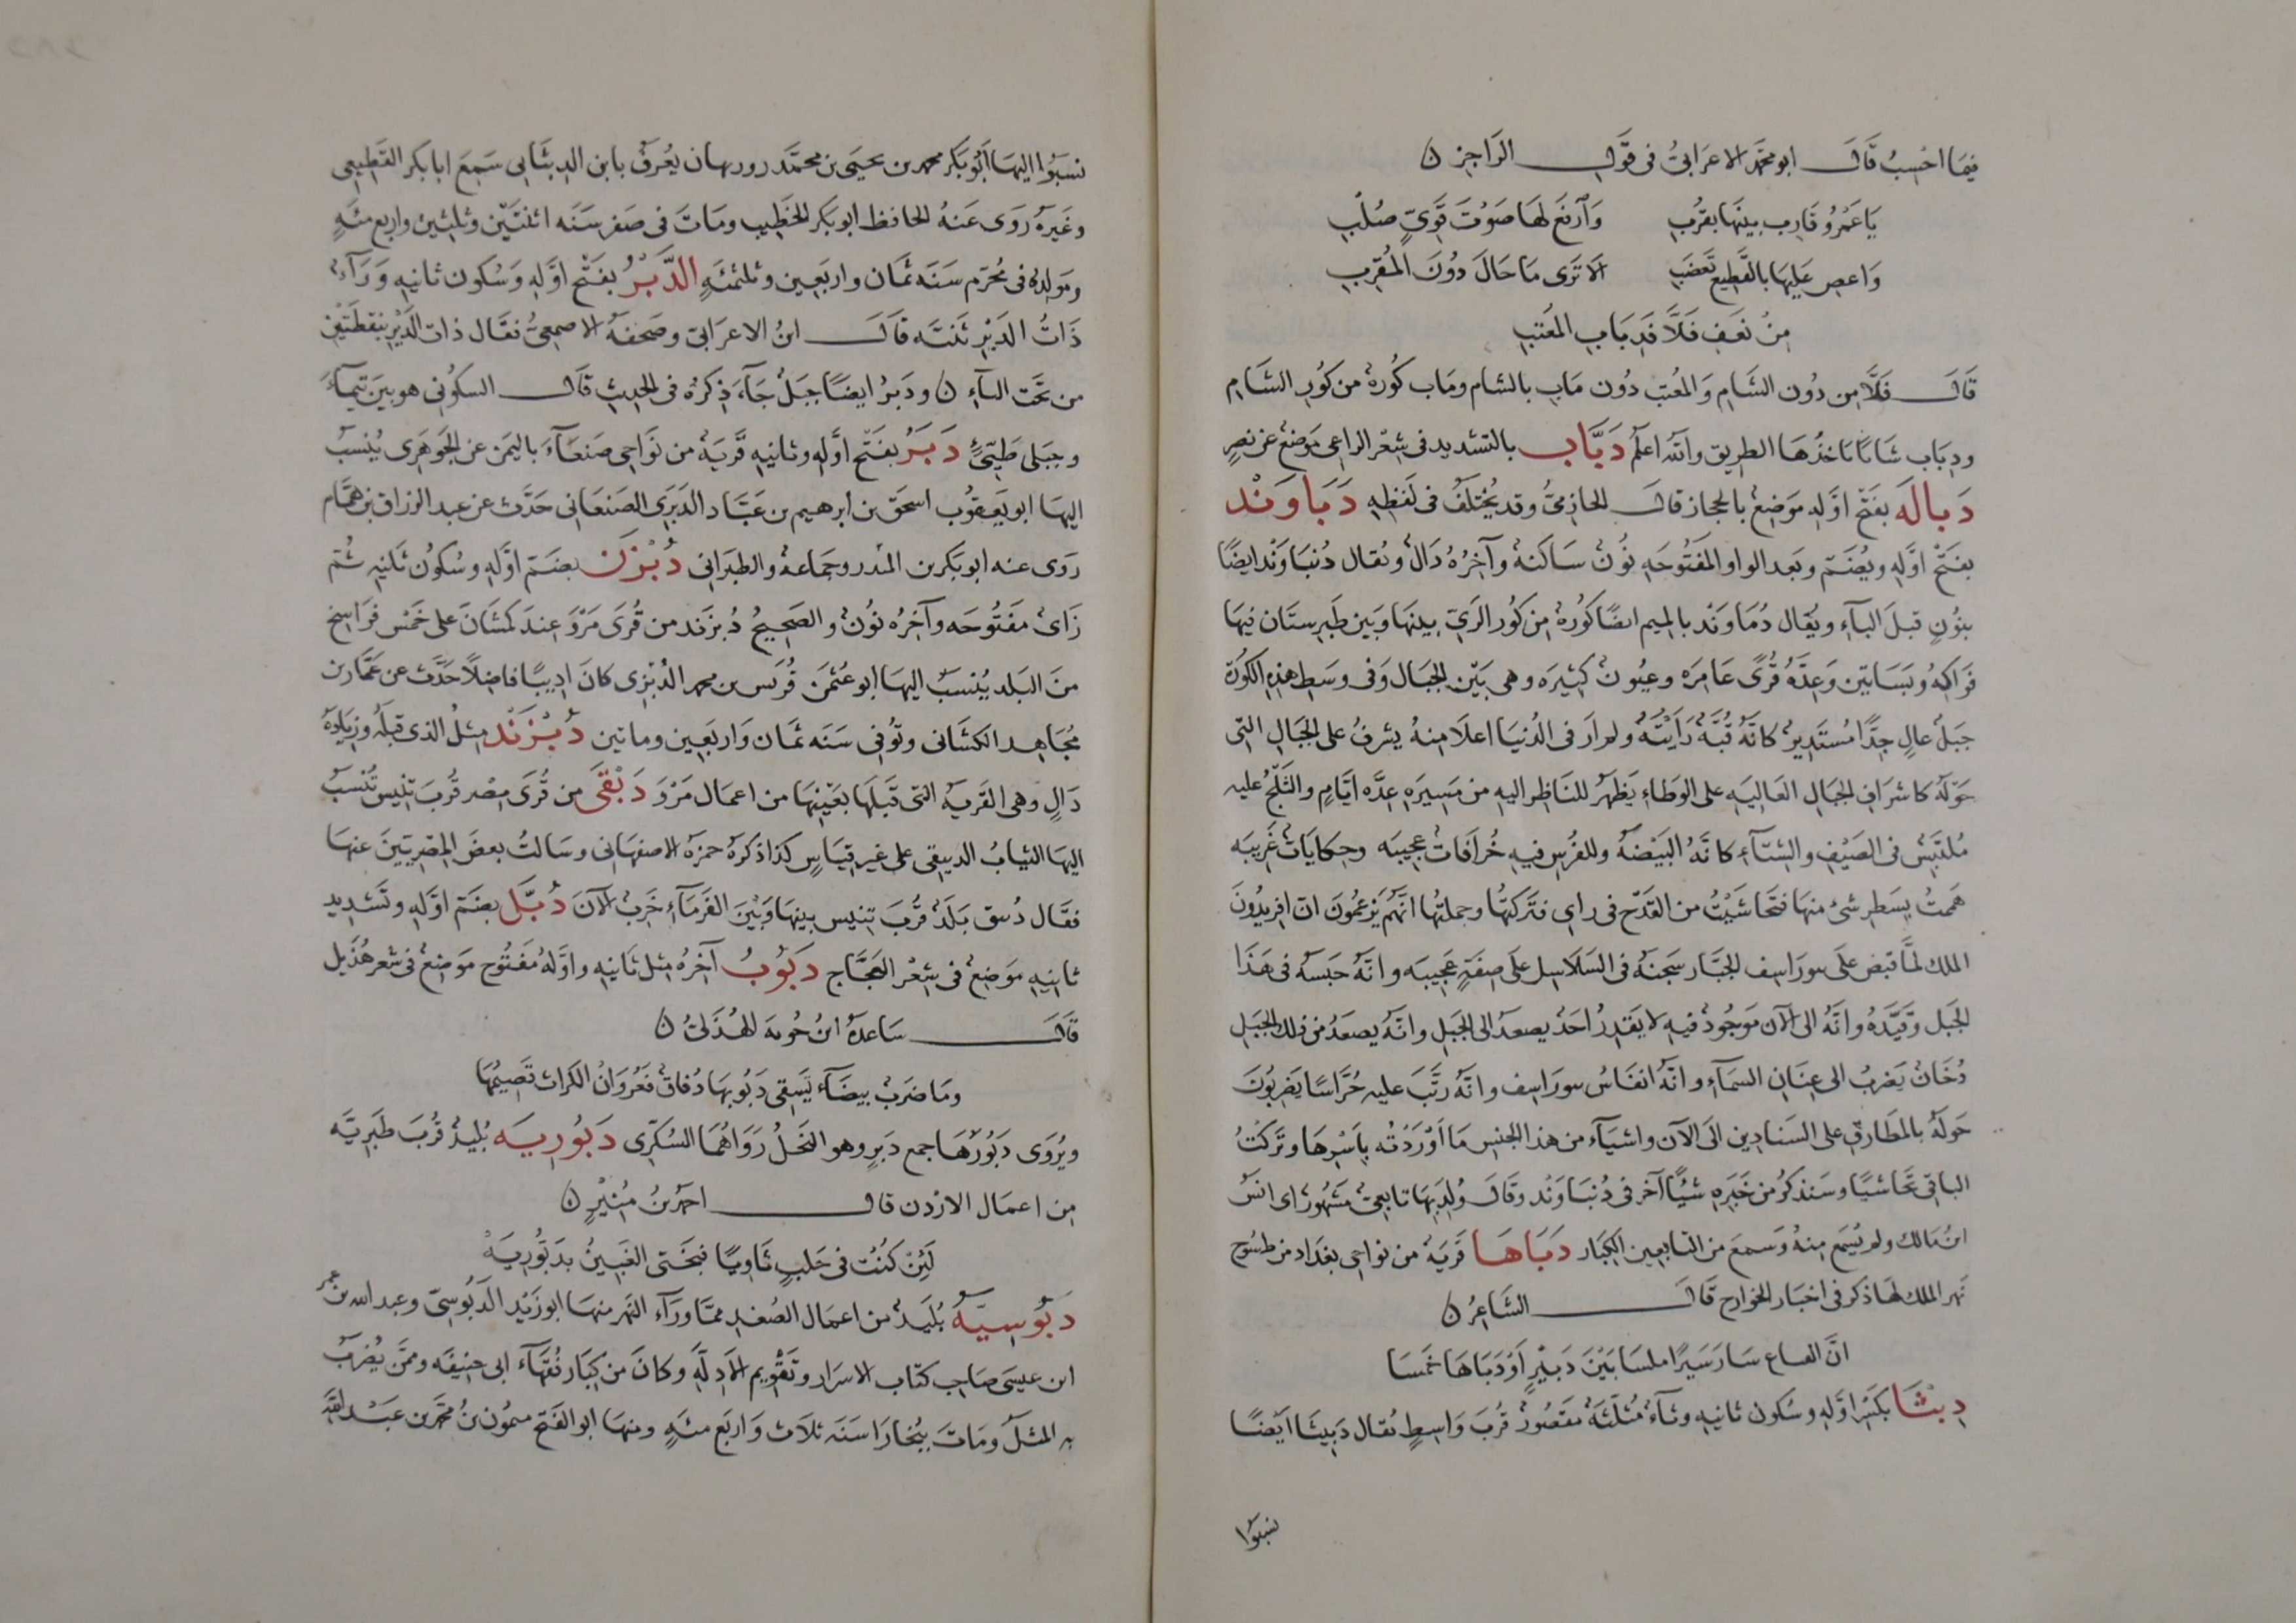 فيما احسب قال ابو محمد الاعرابي في قول الراجز
يا عمرو قارب بينها بقرب وارفع لها صوت قوي صلب
واعص عليها بالقطيع تغضب الا ترى ما حال دون المقرب
من نعف فلا قدباب المعتب
قال فلا من دون الشام والمعتب دون ماب بالشام وماب كورة من كور الشام
ودباب ثنايا ناخذها الطريق والله اعلم دَبَّاب بالتشديد في شعر الراعي موضع عن نصر
دَبالَه بفتح اوله موضع بالحجاز قال الحازمي وقد يختلف في لفظه دَبَاوَنْد
بفتح اوله ويضم وبعد الواو المفتوحه نون ساكنة وآخره دال ويقال دنباوند ايضا
بنون قبل الباء ويقال دماوند بالميم ايضا كورة من كور الري بينها وبين طبرستان فيها
فواكه وبساتين وعدة قرى عامره وعيون كثيره وهي بين الجبال وفي وسط هذه الكورة
جبل عال جدا مستدير كانه قبة رايته ولم ار في الدنيا اعلا منه يشرف على الجبال التي
حوله كاشراف الجبال العاليه على الوطاء يظهر للناظر اليه من مسيره عدة ايام والثلج عليه
ملتبس في الصيف والشتاء كانه البيضة وللفرس فيه خرافات عجيبه وحكايات غريبه
هممت بسطر شئ منها فتحاشيت من القدح في راي فتركتها وجملتها انهم يزعمون ان افريدون
الملك لما قبض على بيوراسف الجبار سجنه في السلاسل على صفة عجيبه وانه حبسه في هذا
الجبل وقيده وانه الى الآن موجود فيه لا يقدر احد يصعد الى الجبل وانه يصعد من ذلك الجبل
دخان يضرب الى عنان السماء وانه انفاس بيوراسف وانه رتب عليه حراسا يضربون
حوله بالمطارق على السنادين الى الآن واشياء من هذا الجنس ما اوردته باسرها وتركت
الباقي تحاشيا وسنذكر من خبره شيئا آخر في دنباوند وقال ولد بها تابعي مشهور راى انس
ابن مالك ولم يسمع منه وسمع من التابعين الكبار دَبَاهَا قرية من نواحي بغداد من طسوج
نهر الملك لها ذكر في اخبار الخوارج قال الشاعر
ان القباع سار سيرا ملسا بين دبيرا ودباها خمسا
دِبْثَا بكسر اوله وسكون ثانيه وثاء مثلثة مقصور قرب واسط يقال دبيثا ايضا
نسبوا
نسبوا اليها ابو بكر محمد بن يحيى بن محمد روزبهان يعرف بابن الدبثايي سمع ابا بكر القطيعي
وغيره روى عنه الحافظ ابو بكر الخطيب ومات في صفر سنه اثنتين وثلثين واربع مئه
ومولده في محرم سنه ثمان واربعين وثلثمئه الدَّبْرُ بفتح اوله وسكون ثانيه وراء
ذات الدبر ثنيه قال ابن الاعرابي وصحفه الاصمعي فقال ذات الدير بنقطتين
من تحت الياء ودبر ايضا جبل جاء ذكره في الحديث قال السكوني هو بين تيماء
وجبلي طيئ دَبَرُ بفتح اوله وثانيه قرية من نواحي صنعاء باليمن عن الجوهري ينسب
اليها ابو يعقوب اسحق بن ابرهيم بن عباد الدبري الصنعاني حدث عن عبد الرزاق بن همام
روى عنه ابو بكر بن المنذر وجماعة والطبراني دُبْزَن بضم اوله وسكون ثانيه ثم
زاي مفتوحه وآخره نون والصحيح دبزند من قرى مرو عند كمشان على خمس فراسخ
من البلد ينسب اليها ابو عثمن قريس بن محمد الدبزي كان اديبا فاضلا حدث عن عمار بن
مجاهد الكشاني وتوفي سنه ثمان واربعين وماتين دُبْزَنْد مثل الذي قبله وزيادة
دال وهي القرية التي قبلها بعينها من اعمال مرو دَبْقَى من قرى مصر قرب تنيس تنسب
اليها الثياب الدبيقي على غير قياس كذا ذكره حمزة الاصفهاني وسالت بعض المصريين عنها
فقال دبيق بلد قرب تنيس بينها وبين الفرماء خرب الآن دُبَّل بضم اوله وتشديد
ثانيه موضع في شعر العجاج دَبُوبُ آخره مثل ثانيه واوله مفتوح موضع في شعر هذيل
قال ساعدة ابن جوية الهذلي
وما ضرب بيضاء يسقي دبوبها دفاق فعروان الكراث فضيمها
ويروى دبورها جمع دبر وهو النحل رواهما السكري دَبُورِيَه بليد قرب طبرية
من اعمال الاردن قال احمد بن منير
لئن كنت في حلب ثاويا فبختى الغبين بدبوريه
دَبُوسِيَّة بليد من اعمال الصغد مما وراء النهر منها ابو زيد الدبوسي وعبد الله بن عمر
ابن عيسى صاحب كتاب الاسرار وتقويم الادلة وكان من كبار فقهاء ابي حنيفه وممن يضرب
به المثل ومات ببخارا سنه ثلاث واربع مئه ومنها ابو الفتح ميمون بن محمد بن عبد الله